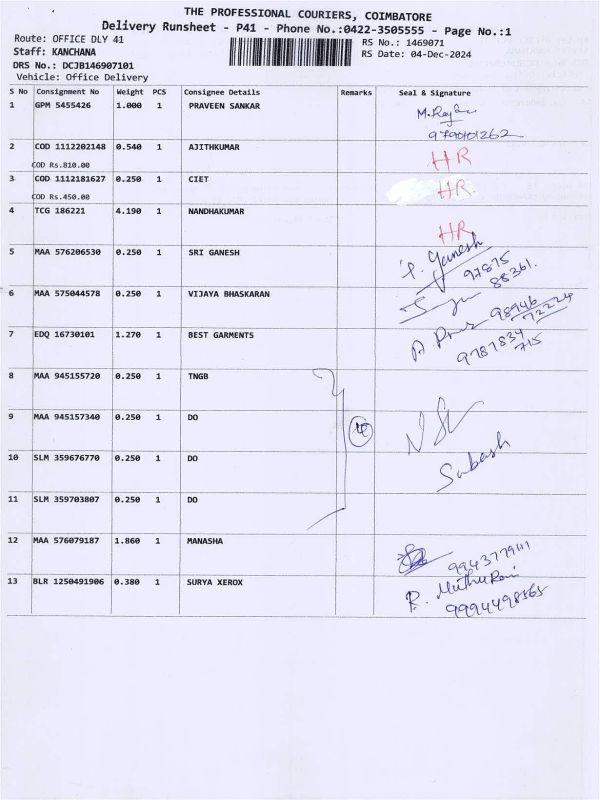 THE PROFESSIONAL COURIERS, COIMBATORE
Delivery Runsheet - P41 - Phone No.:0422-3505555 - Page No.:1
Route: OFFICE DLY 41
RS No.: 1469071
Staff: KANCHANA
RS Date: 04-Dec-2024
DRS No.: DCJB146907101
Vehicle: Office Delivery
S No Consignment No Weight PCS Consignee Details Remarks Seal & Signature
1 GPM 5455426 1.000 1 PRAVEEN SANKAR
9790101262
2 COD 1112202148 0.540 1 AJITHKUMAR HR
COD Rs.810.00
3 COD 1112181627 0.250 1 CIET HR
COD Rs.450.00
4 TCG 186221 4.190 1 NANDHAKUMAR HR
5 MAA 576206530 0.250 1 SRI GANESH
Ganesh
97875
88361.
6 MAA 575044578 0.250 1 VIJAYA BHASKARAN
98946
72224
7 EDQ 16730101 1.270 1 BEST GARMENTS
9787834
715
8 MAA 945155720 0.250 1 TNGB
9 MAA 945157340 0.250 1 DO
10 SLM 359676770 0.250 1 DO
Subash
11 SLM 359703807 0.250 1 DO
12 MAA 576079187 1.860 1 MANASHA
13 BLR 1250491906 0.380 1 SURYA XEROX
R. Muthu
9994498565